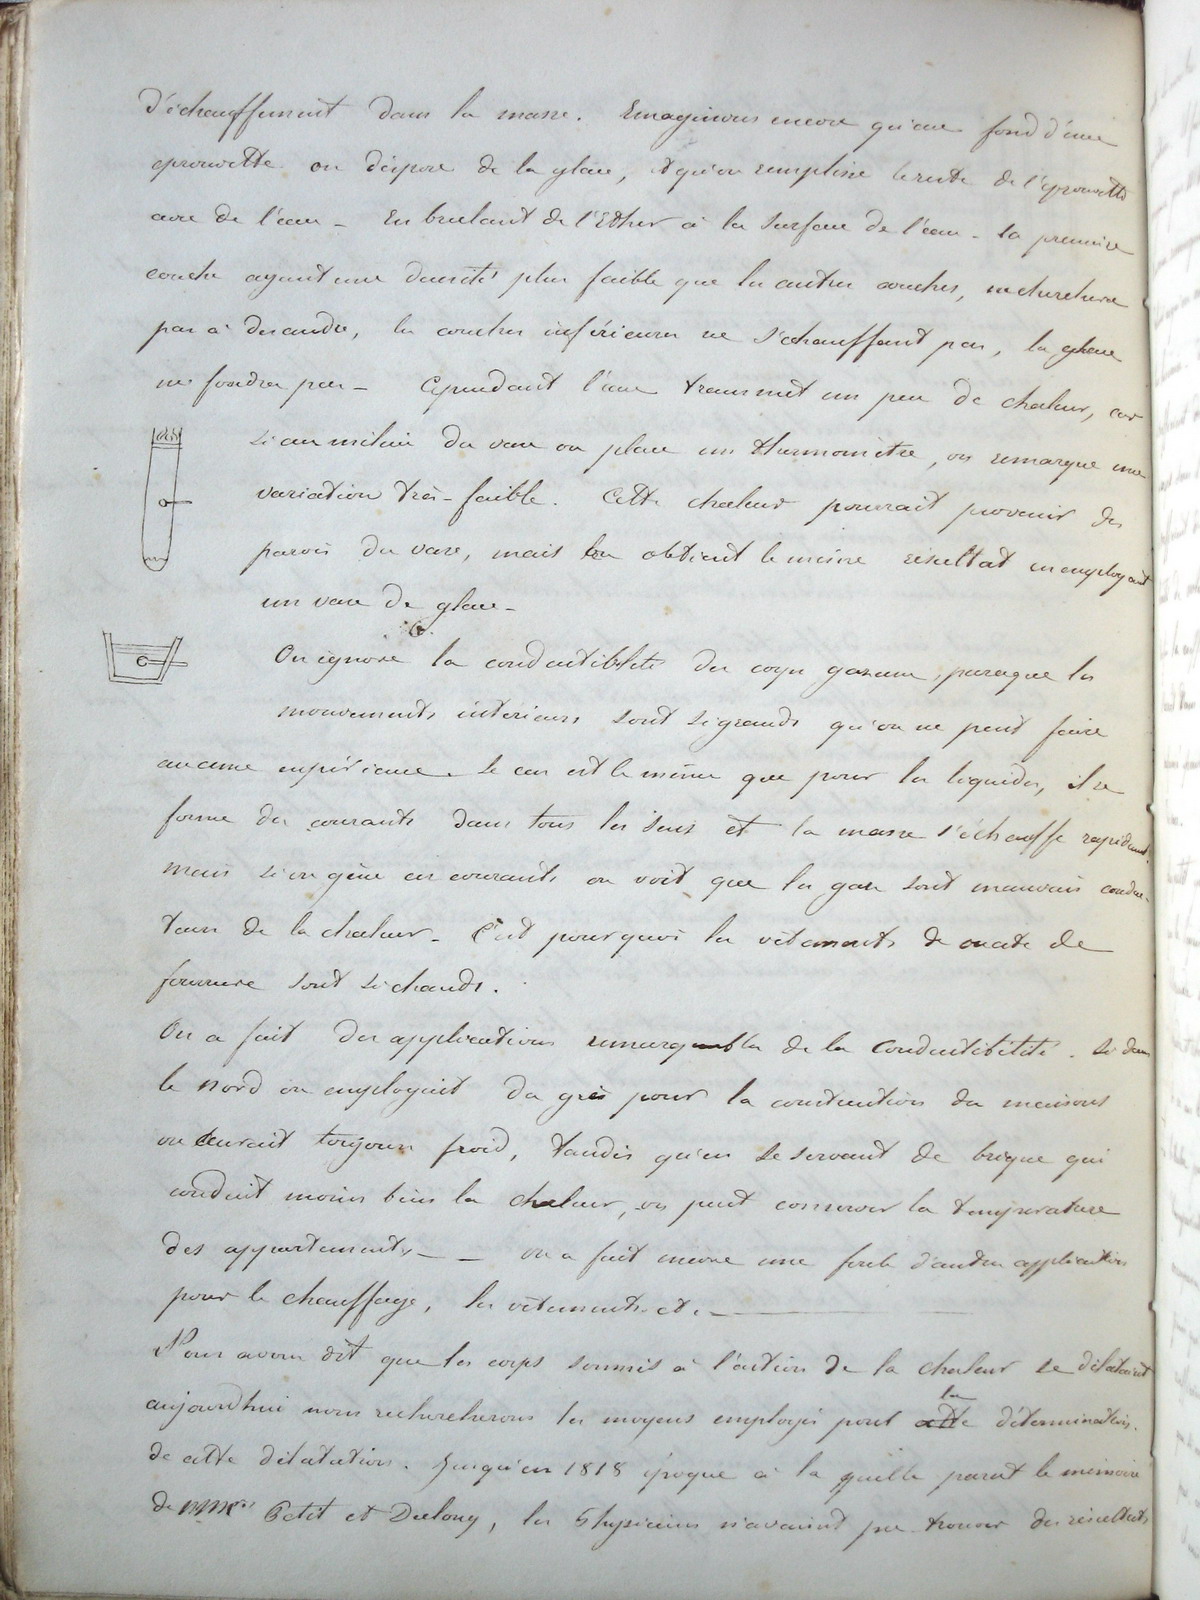 d'échauffement dans la masse. Imaginons encore qu'au fond d'une
eprouvette on dépose de la glace, et qu'on remplisse le reste de l'eprouvette
avec de l'eau - En brulant de l'Ether à la surface de l'eau - la première
couche ayant une densité plus faible que les autres couches, ne cherchera
pas à descendre, les couches inférieures ne s'échauffant pas, la glace
ne fondra pas - Cependant l'eau transmet un peu de chaleur, car
si au milieu du vase on place un thermomètre, on remarque une
variation très-faible. Cette chaleur pourrait provenir des
parois du vase, mais l'on obtient le même résultat en employant
un vase de glace -
On ignore la conductibilité des corps gazeux, parceque les
mouvements interieurs sont si grands qu'on ne peut faire
aucune expérience. Le cas est le même que pour les liquides, il se
forme des courants dans tous les sens et la masse s'échauffe rapidemt.
mais si on gêne ces courants on voit que les gaz sont mauvais conduc-
teurs de la chaleur - C'est pourquoi les vêtements de ouate de
fourrure sont si chauds.
On a fait des applications remarquables de la Conductibilité. Si dans
le nord on employait du grès pour la construction des maisons
on aurait toujours froid, tandis qu'en se servant de brique qui
conduit moins bien la chaleur, on peut conserver la température
des appartements - - on a fait encore une foule d'autres applications
pour le chauffage, les vêtements et. -
Nous avons dit que les corps soumis à l'action de la chaleur se dilataient
aujourd'hui nous rechercherons les moyens employés pour cette la détermination.
de cette dilatation. Jusqu'en 1818 époque à la quelle parut le mémoire
de MMrs Petit et Dulong, les Physiciens n'avaient pu trouver des résultats